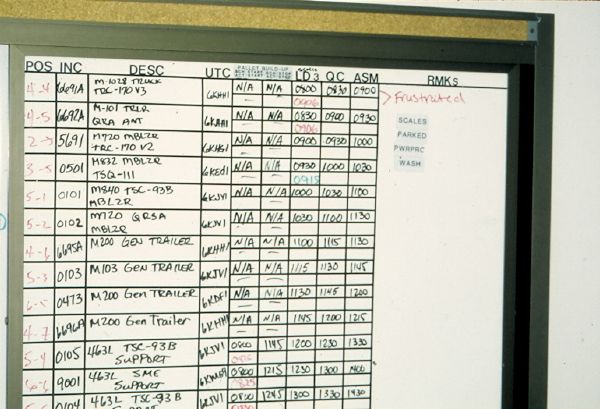 POS INC DESC UTC PALLET BUILD-UP LD 3 QC ASM RMKS
4-4 6691A M-1028 TRUCK 6KHH1 N/A N/A 0800 0830 0900 > Frustrated
TRC-170 V3 0906
4-5 6692A M-101 TRLR N/A N/A 0830 0900 0930 SCALES
QRA ANT 0906 PARKED
2-3 5691 M720 MBLZR N/A N/A 0900 0930 1000 PWRPRC
TRC-170 V2
3-5 0501 M832 MBLZR N/A N/A 0930 1000 1030 WASH
TSQ-111 0915
5-1 0101 M840 TSC-93B 6KJV1 N/A N/A 1000 1030 1100
MBLZR
5-2 0102 M720 QRSA 6KJV1 N/A N/A 1030 1100 1130
MBLZR
4-6 6695A M200 GEN TRAILER 6KHH1 N/A N/A 1100 1115 1130
5-3 0103 M103 GEN TRAILER 6KJV1 N/A N/A 1115 1130 1145
6-5 0473 M200 GEN TRAILER 6KDF1 N/A N/A 1130 1145 1200
4-7 6696A M200 Gen Trailer 6KHH1 N/A N/A 1145 1200 1215
5-4 0105 463L TSC-93B 6KJV1 0800 1145 1200 1230 1330
SUPPORT
6-6 9001 463L SME 0800 1215 1230 1300 1400
SUPPORT 0825
5- 0104 463L TSC-93B 6KJV1 0800 1245 1300 1330 1430
SUPPORT